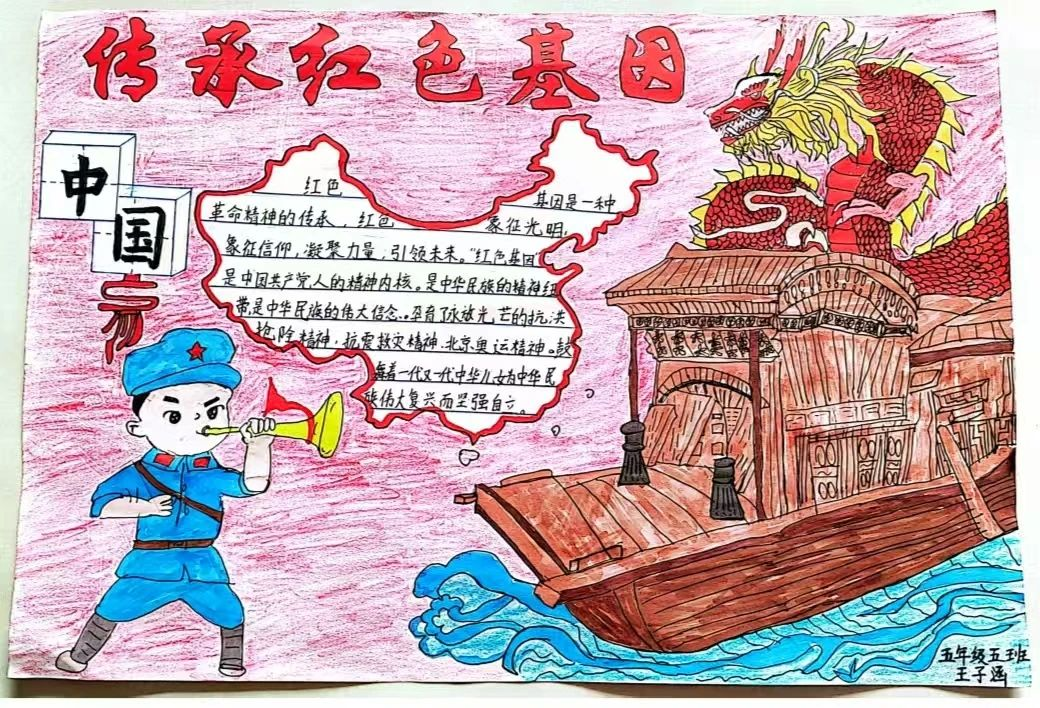 传承红色基因
中
国
红色 基因是一种
革命精神的传承，红色 象征光明，
象征信仰，凝聚力量，引领未来。"红色基因"
是中国共产党人的精神内核。是中华民族的精神纽
带是中华民族的伟大信念。孕育了永放光芒的抗洪
抢险精神，抗震救灾精神、北京奥运精神。鼓
舞着一代又一代中华儿女为中华民
族伟大复兴而坚强自立。
五年级五班
王子涵